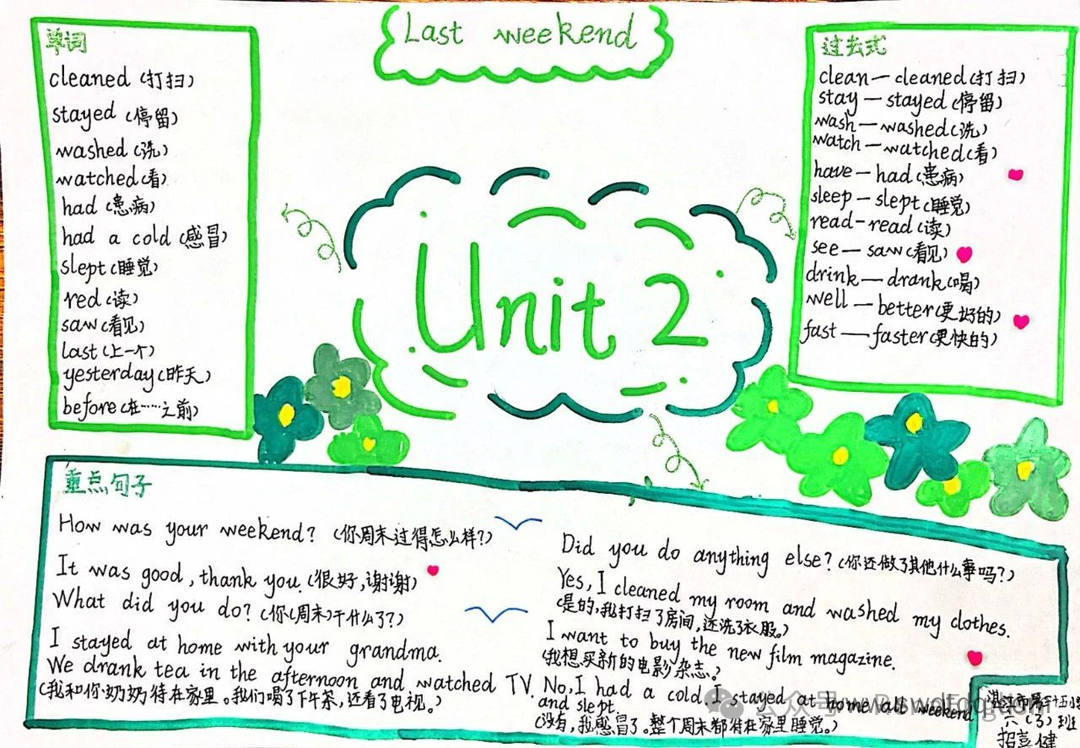 Last weekend
单词
cleaned (打扫)
stayed (停留)
washed (洗)
watched (看)
had (患病)
had a cold (感冒)
slept (睡觉)
red (读)
saw (看见)
last (上一个)
yesterday (昨天)
before (在……之前)
Unit 2
过去式
clean—cleaned (打扫)
stay—stayed (停留)
wash—washed (洗)
watch—watched (看)
have—had (患病)
sleep—slept (睡觉)
read-read (读)
see—saw (看见)
drink—drank (喝)
well—better (更好的)
fast—faster (更快的)
重点句子
How was your weekend? (你周末过得怎么样?)
It was good, thank you. (很好,谢谢)
What did you do? (你(周末)干什么了?)
I stayed at home with your grandma.
We drank tea in the afternoon and watched TV.
(我和你奶奶待在家里。我们喝了下午茶,还看了电视。)
Did you do anything else? (你还做了其他什么事吗?)
Yes, I cleaned my room and washed my clothes.
(是的,我打扫了房间,还洗了衣服。)
I want to buy the new film magazine.
(我想买新的电影杂志。)
No, I had a cold I stayed at home all weekend
and slept.
(没有,我感冒了。整个周末都待在家里睡觉。)
公众号
六(3)班